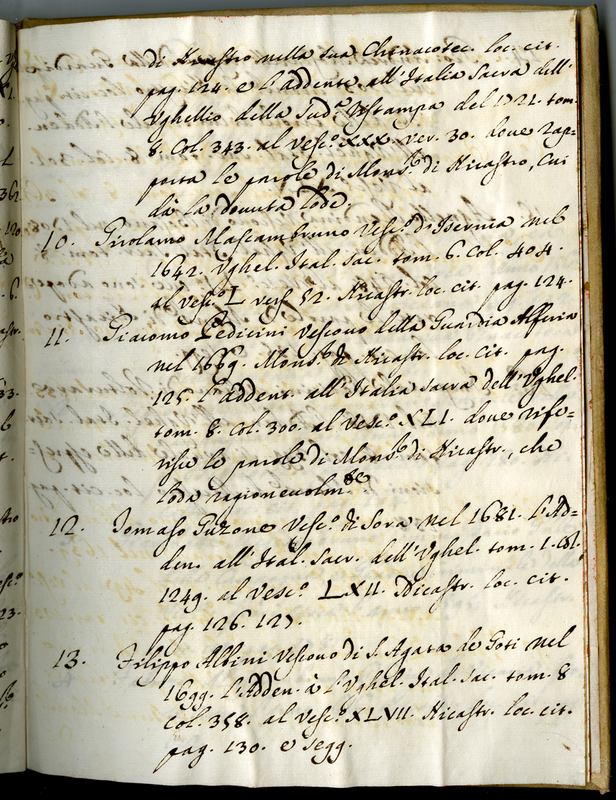 di Nicastro nella sua Chinacotec. loc. cit.
pag. 124. e l'Addente all'Italia Sacra dell'
Vghellio della sud.ª Ristampa del 1721. tom.
8. Col. 343. al Vesc.º XXX. ver. 30. dove rap=
porta le parole di Mons.r di Nicastro, cui
dà la dovuta lode.
10. Girolamo Mascambruno Vesc.º d'Isernia nel
1642. Vghel. Ital. Sac. tom. 6. Col. 404.
al Vesc.º L vers. 52. Nicastr. loc. cit. pag. 124.
11. Giacomo Pedicini Vescovo della Guardia Alferia
nel 1669. Mons.r di Nicastr. loc. cit. pag.
125. l'Addent. all'Italia Sacra dell'Vghel.
tom. 8. Col. 300. al Vesc.º XLI. dove rife=
risce le parole di Mons.r di Nicastr., che
loda ragionevolm.te
12. Tomaso Guzone Vesc.º di Sora nel 1681. l'Ad=
den. all'Ital. Sacr. dell'Vghel. tom. 1. Col.
1249. al Vesc.º LXII. Nicastr. loc. cit.
pag. 126. 127.
13. Filippo Albini Vescovo di S. Agata de Goti nel
1699. l'Adden. à l'Vghel. Ital. Sac. tom. 8
Col. 358. al Vesc.º XLVII. Nicastr. loc. cit.
pag. 130. e segg.